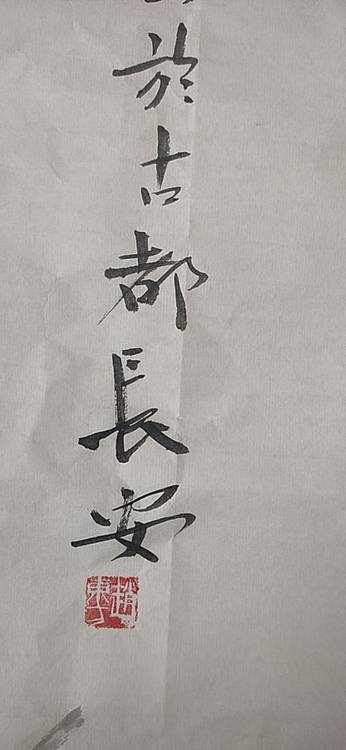 於古都長安